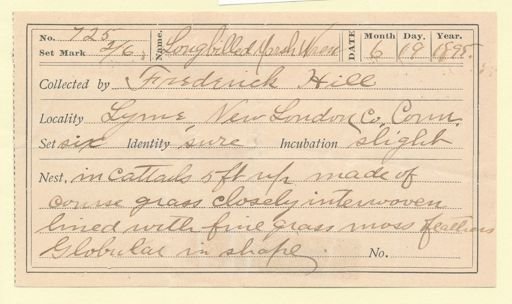 No. 725 Name. Longbilled Marsh Wren DATE Month Day. Year.
Set Mark 2/6 6 19 1895.
Collected by Frederick Hill
Locality Lyme, New London Co. Conn.
Set six Identity sure Incubation slight
Nest, in cattails 5 ft up made of
course grass closely interwoven
lined with fine grass moss feathers
Globular in shape. No.